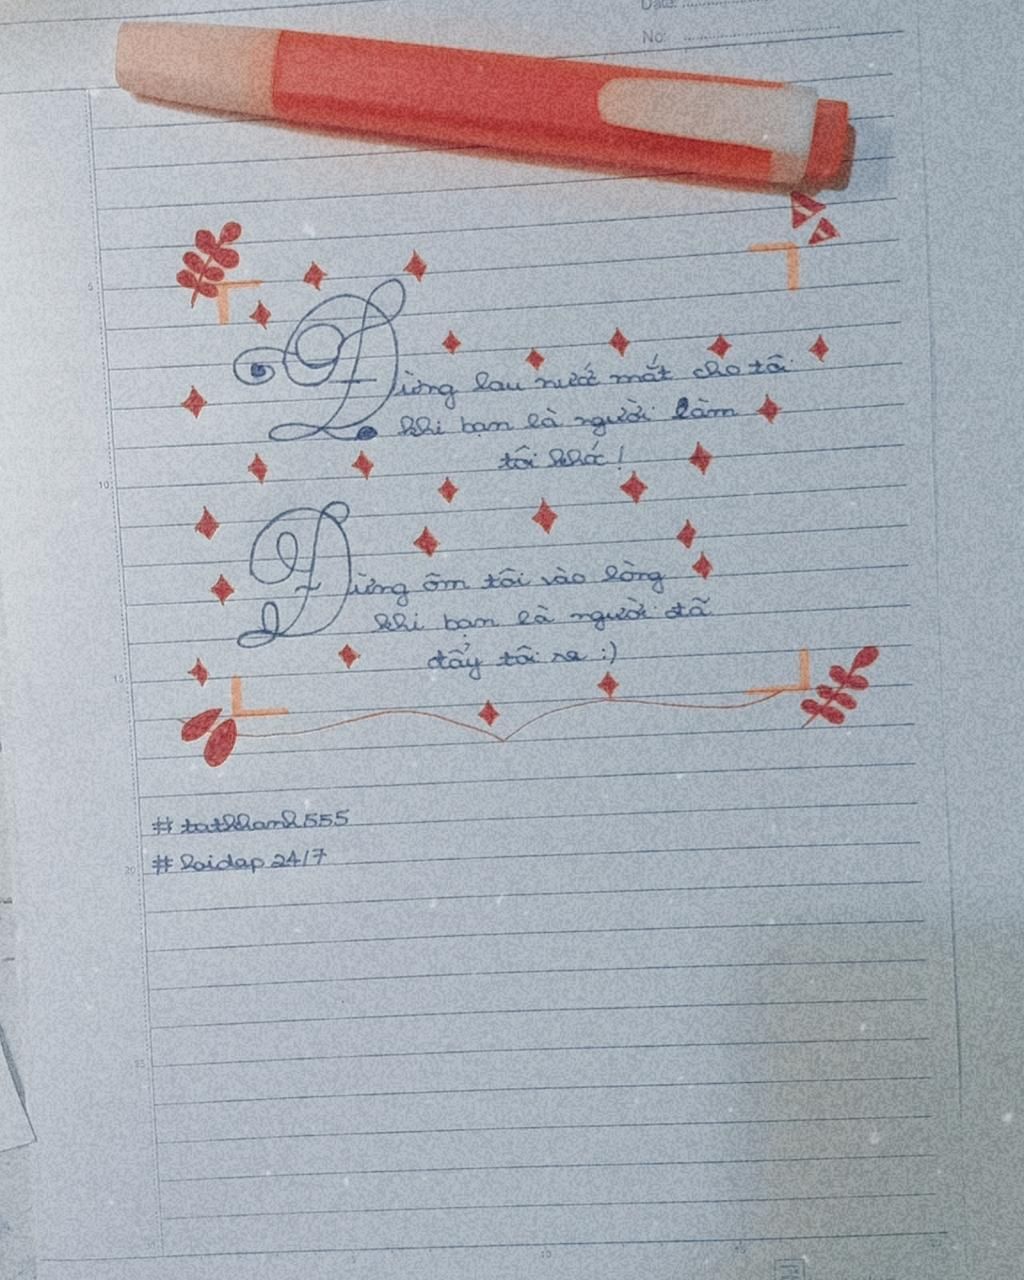 Date:
No:
5
Đừng lau nước mắt cho tôi
khi bạn là người làm
tôi khóc!
10
Đừng ôm tôi vào lòng
khi bạn là người đã
đẩy tôi ra :)
15
# tatkhanh555
# hoidap 24/7
20
25
5 10 15